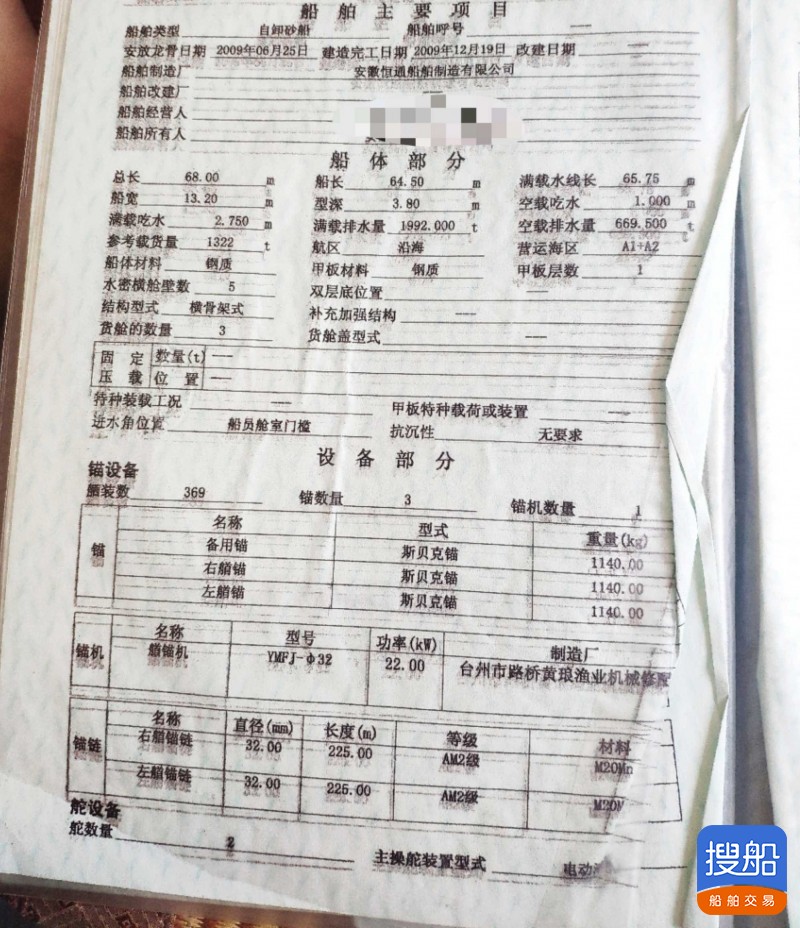 船舶主要项目
船舶类型 自卸砂船 船舶呼号 —
安放龙骨日期 2009年06月25日 建造完工日期 2009年12月19日 改建日期 —
船舶制造厂 安徽恒通船舶制造有限公司
船舶改建厂 —
船舶经营人
船舶所有人
船体部分
总长 68.00 m 船长 64.50 m 满载水线长 65.75 m
船宽 13.20 m 型深 3.80 m 空载吃水 1.000 m
满载吃水 2.750 m 满载排水量 1992.000 t 空载排水量 669.500 t
参考载货量 1322 t 航区 沿海 营运海区 A1+A2
船体材料 钢质 甲板材料 钢质 甲板层数 1
水密横舱壁数 5 双层底位置 —
结构型式 横骨架式 补充加强结构 —
货舱的数量 3 货舱盖型式 —
固定压载 数量(t) —
位置 —
特种装载工况 — 甲板特种载荷或装置 —
进水角位置 船员舱室门槛 抗沉性 无要求
设备部分
锚设备
舾装数 369 锚数量 3 锚机数量 1
锚 名称 型式 重量(kg)
备用锚 斯贝克锚 1140.00
右艏锚 斯贝克锚 1140.00
左艏锚 斯贝克锚 1140.00
锚机 名称 型号 功率(kW) 制造厂
艏锚机 YMFJ-φ32 22.00 台州市路桥黄琅渔业机械修配
锚链 名称 直径(mm) 长度(m) 等级 材料
右艏锚链 32.00 225.00 AM2级 M20Mn
左艏锚链 32.00 225.00 AM2级 M20M
舵设备
舵数量 2 主操舵装置型式 电动
搜船
船舶交易